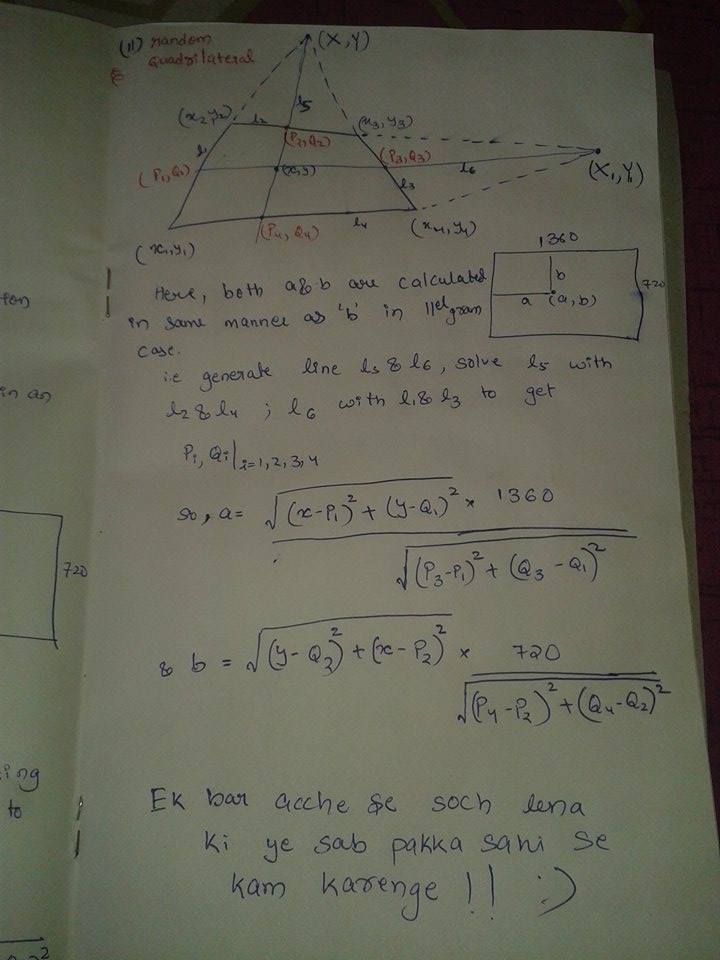 (11) random
quadrilateral
(X, Y)
l5
(x2, y2)
l2
(x3, y3)
(P2, Q2)
l1
(P1, Q1)
(x, y)
(P3, Q3)
l6
(X1, Y1)
l3
(P4, Q4)
l4
(x4, y4)
(x1, y1)
1360
b
720
a
(a, b)
Here, both a & b are calculated
in same manner as 'b' in ||el gram
case.
i.e generate line l5 & l6, solve l5 with
l2 & l4 ; l6 with l1 & l3 to get
Pi, Qi|i=1,2,3,4
so, a = √(x-P1)² + (y-Q1)² × 1360
√(P3-P1)² + (Q3-Q1)²
& b = √(y-Q2)² + (x-P2)² × 720
√(P4-P2)² + (Q4-Q2)²
Ek bar acche se soch lena
ki ye sab pakka sahi se
kam karenge !! :)
in an
720
ing
to